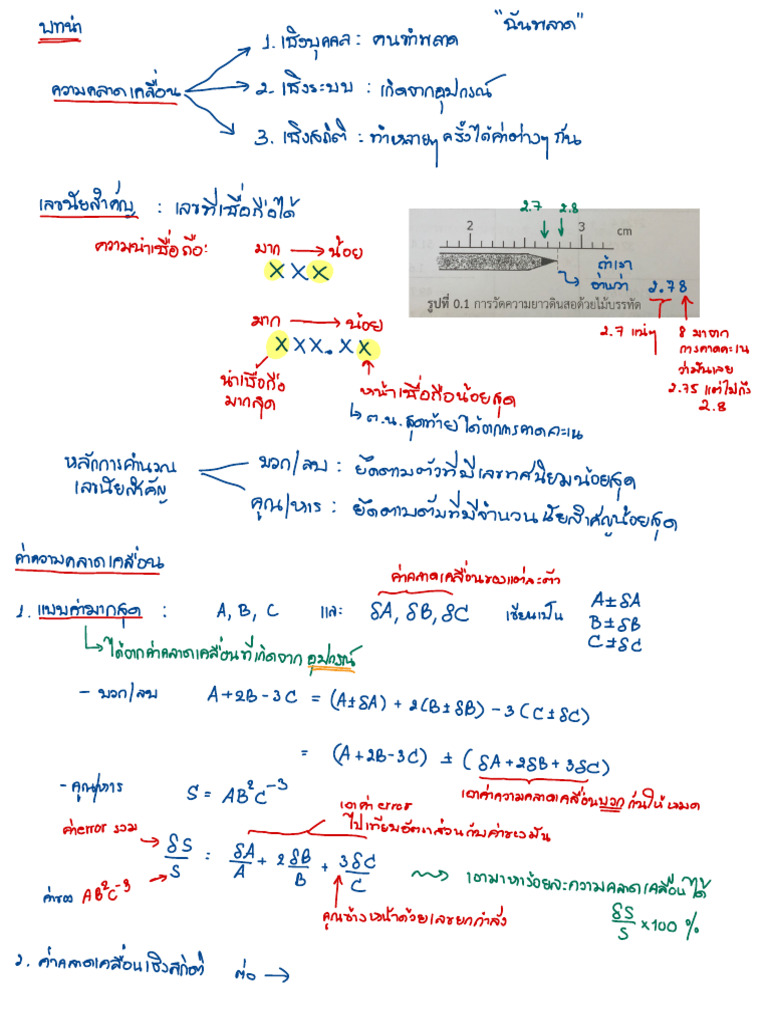 บทนำ
"ฉันพลาด"
ความคลาดเคลื่อน
1. เชิงบุคคล : คนทำพลาด
2. เชิงระบบ : เกิดจากอุปกรณ์
3. เชิงสถิติ : ทำหลายๆ ครั้งได้ค่าต่างๆ กัน
เลขนัยสำคัญ : เลขที่เชื่อถือได้
ความน่าเชื่อถือ: มาก → น้อย
X X X
2.7 2.8
2 3 cm
ถ้าเรา
อ่านว่า 2.78
รูปที่ 0.1 การวัดความยาวดินสอด้วยไม้บรรทัด
2.7 แน่ๆ
8 มาจาก
การคาดคะเน
ว่ามันเลย
2.75 แต่ไม่ถึง
2.8
มาก → น้อย
X X X . X X
น่าเชื่อถือ
มากสุด
หน้าเชื่อถือน้อยสุด
↳ ต.น. สุดท้ายได้จากการคาดคะเน
หลักการคำนวณ
เลขนัยสำคัญ
บวก/ลบ : ยึดตามตัวที่มีเลขทศนิยมน้อยสุด
คูณ/หาร : ยึดตามตัวที่มีจำนวนนัยสำคัญน้อยสุด
ค่าความคลาดเคลื่อน
ค่าคลาดเคลื่อนของแต่ละตัว
1. แบบค่ามากสุด : A, B, C และ δA, δB, δC เขียนเป็น A±δA
B±δB
C±δC
↳ ได้จากค่าคลาดเคลื่อนที่เกิดจากอุปกรณ์
- บวก/ลบ A+2B-3C = (A±δA) + 2(B±δB) - 3(C±δC)
= (A+2B-3C) ± (δA+2δB+3δC)
เอาค่าความคลาดเคลื่อนบวกกันให้หมด
- คูณ/หาร S = AB²C⁻³
เอาค่า error
ไปเทียบอัตราส่วนกับค่าของมัน
ค่า error รวม
δS/S = δA/A + 2δB/B + 3δC/C
ค่าของ AB²C⁻³
คูณข้างหน้าด้วยเลขยกกำลัง
เอามาหาร้อยละความคลาดเคลื่อนได้
δS/S × 100 %
2. ค่าคลาดเคลื่อนเชิงสถิติ ต่อ →